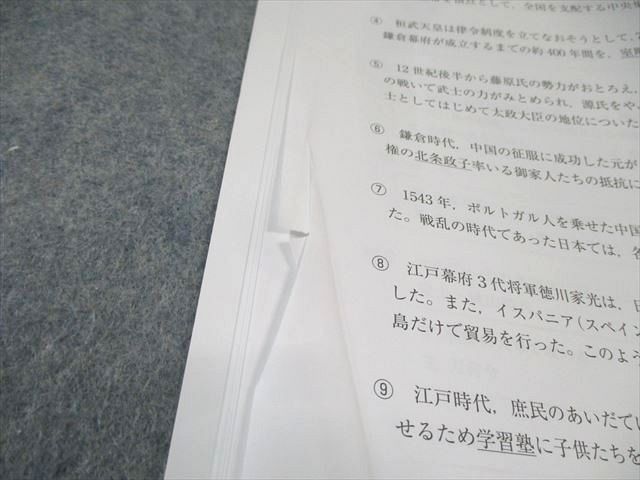 を頂点として，全国を支配する中央集
④ 桓武天皇は律令制度を立てなおそうとして，
鎌倉幕府が成立するまでの約400年間を，室町
⑤ 12世紀後半から藤原氏の勢力がおとろえ，
の戦いで武士の力がみとめられ，源氏をや
士としてはじめて太政大臣の地位についた
⑥ 鎌倉時代，中国の征服に成功した元が
権の北条政子率いる御家人たちの抵抗に
⑦ 1543年，ポルトガル人を乗せた中国
た。戦乱の時代であった日本では，各
⑧ 江戸幕府３代将軍徳川家光は，日
した。また，イスパニア（スペイン
島だけで貿易を行った。このよう
⑨ 江戸時代，庶民のあいだでは
せるため学習塾に子供たちを